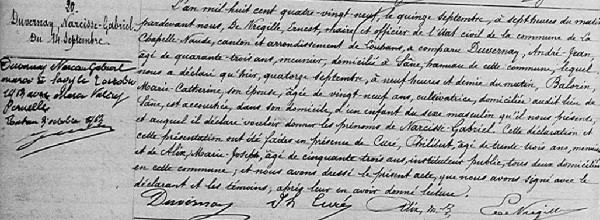 20.
Duvernay, Narcisse-Gabriel
Du 14 Septembre.
Duvernay Narcisse Gabriel
L'an mil huit cent quatre-vingt neuf, le quinze Septembre, à sept heures du matin
pardevant nous, De Vregille, Ernest, maire et officier de l'état civil de la commune de La
Chapelle-Naude, canton et arrondissement de Louhans, a comparu Duvernay, André-Jean
âgé de quarante trois ans, meunier, domicilié à Sâne, hameau de cette commune, lequel
nous a déclaré qu'hier, quatorze septembre, à neuf heures et demie du matin,
Marie-Catherine, son épouse, âgée de vingt neuf ans, cultivatrice, domiciliée audit lieu de
Sâne, est accouchée, dans son domicile, d'un enfant du sexe masculin qu'il nous présente,
et auquel il déclare vouloir donner les prénoms de Narcisse-Gabriel. Cette déclaration et
cette présentation ont été faites en présence de Curé, Philibert, âgé de trente trois ans,
et de Alix, Marie-Joseph, âgé de cinquante trois ans, instituteur public, tous deux domiciliés
en cette commune; et nous avons dressé le présent acte, que nous avons signé avec le
déclarant et les témoins, après leur en avoir donné lecture.
Duvernay Ph Curé Alix m. j. De Vregille